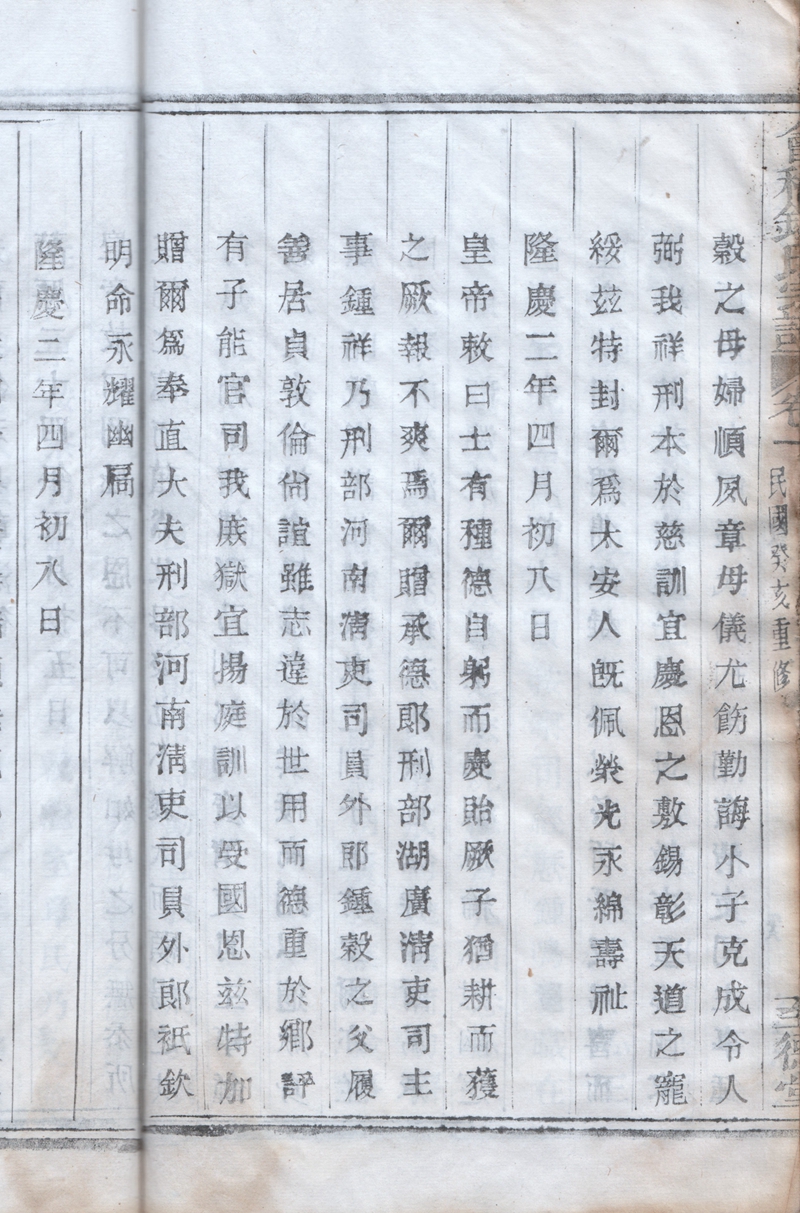 會稽鍾氏宗譜 卷一 民國癸亥重修 至德堂
穀之母婦順夙章母儀尤飭勤誨小子克成令人
弼我祥刑本於慈訓宜慶恩之敷錫彰天道之寵
綏茲特封爾爲太安人旣佩榮光永綿壽祉
隆慶二年四月初八日
皇帝敕曰士有種德自躬而慶貽厥子猶耕而穫
之厥報不爽焉爾贈承德郎刑部湖廣淸吏司主
事鍾祥乃刑部河南淸吏司員外郎鍾穀之父履
善居貞敦倫尙誼雖志違於世用而德重於鄕評
有子能官司我庶獄宜揚庭訓以受國恩茲特加
贈爾爲奉直大夫刑部河南淸吏司員外郎祇欽
明命永耀幽扃
隆慶二年四月初八日